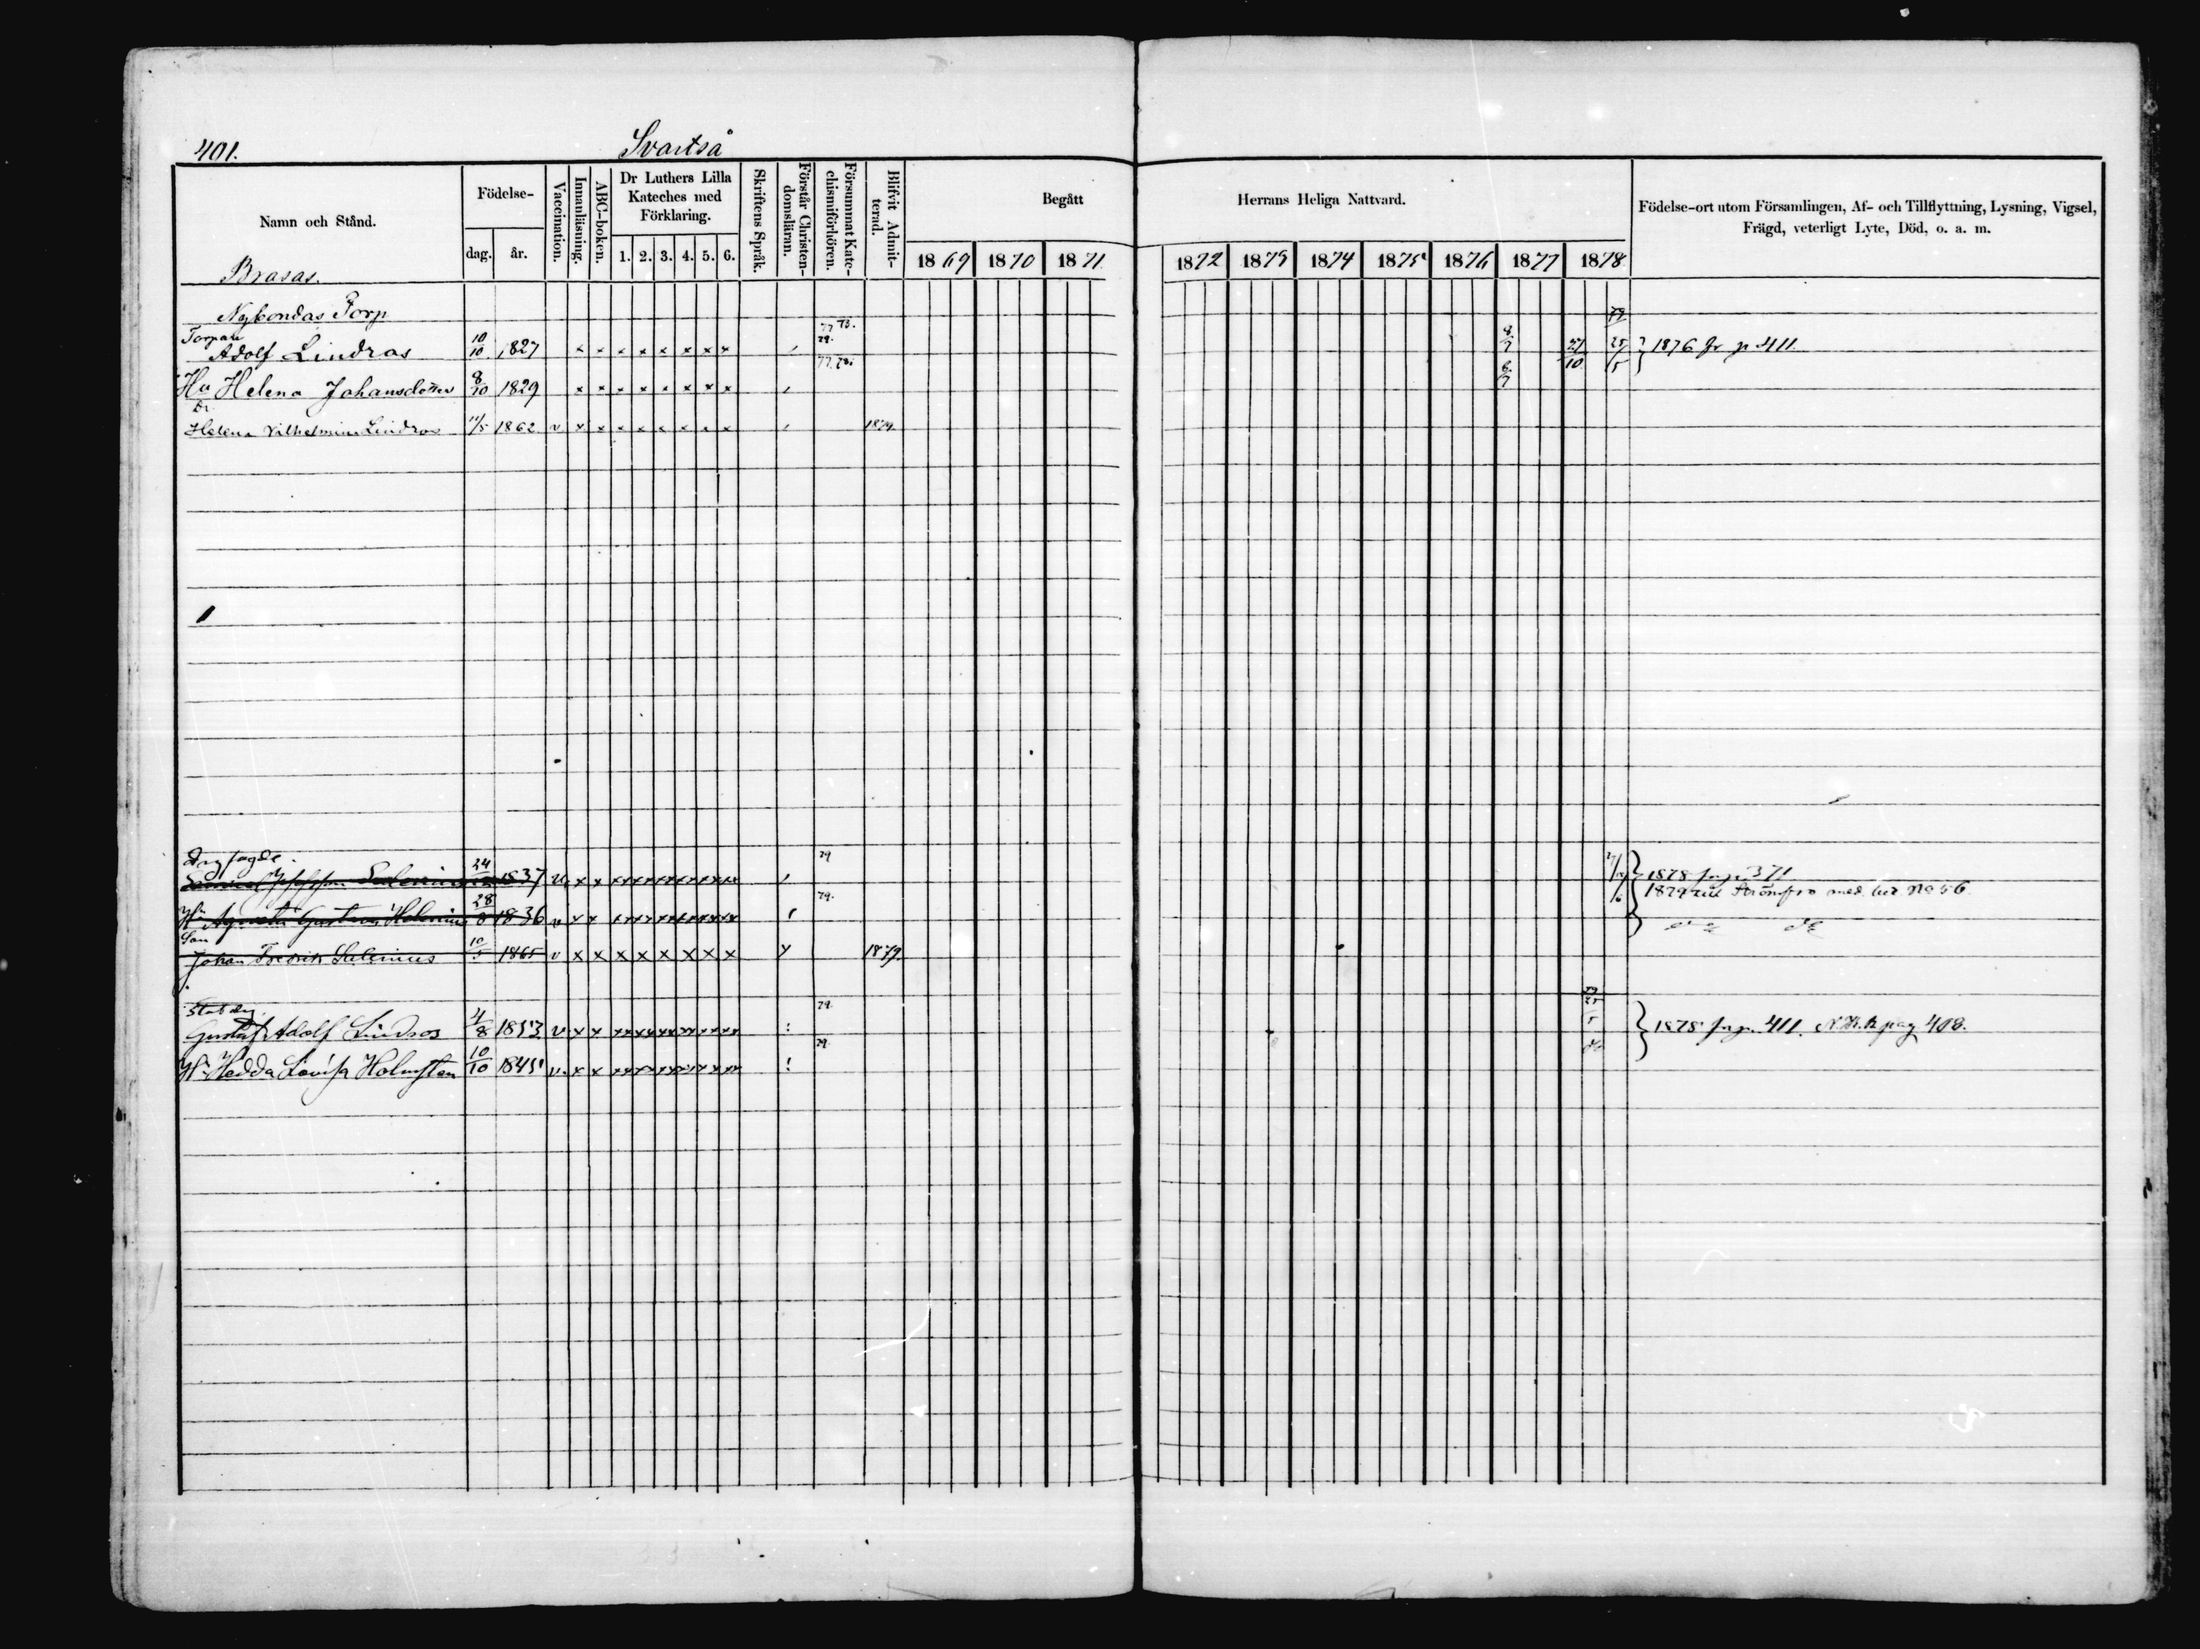 401. Svartså
Namn och Stånd.
Födelse-
dag. år.
Vaccination.
Innanläsning.
ABC-boken.
Dr Luthers Lilla Kateches med Förklaring.
1. 2. 3. 4. 5. 6.
Skriftens Språk.
Förstår Christen-domsläran.
Försummat Kate-chismiförhören.
Blifvit Admit-terad.
Begått Herrans Heliga Nattvard.
1869 1870 1871 1872 1873 1874 1875 1876 1877 1878
Födelse-ort utom Församlingen, Af- och Tillflyttning, Lysning, Vigsel,
Frägd, veterligt Lyte, Död, o. a. m.
Brasas.
Nybondas Torp
Torpare 77 78.
Adolf Lindros 10/10 1827 x x x x x x x x 79. 8/7 27/10 25/5 1876 fr p 411.
77.78.
Hu Helena Johansdotter 8/10 1829 x x x x x x x x 8/7
Dr
Helena Vilhelmina Lindros 11/5 1862 v x x x x x x x x 1879
79
24 1837 v x x 1878 fr p. 371
1879 till med bet No 56
79.
Hu Gustava 28/8 1836 v x x
Son
Johan Fredrik Salenius 10/5 1865 v x x x x x x x x 1879.
79.
Gustaf Adolf Lindros 4/8 1853 v x x 25/5 1878 fr p. 411. N.K.b. pag 408.
79.
Hu Hedda Lovisa Holmsten 10/10 1845 v. x x